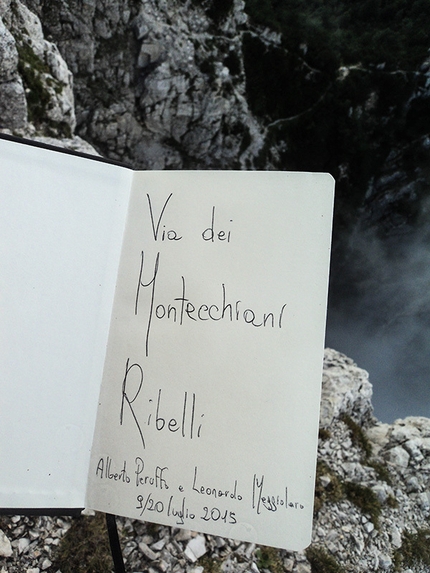 Via dei
Montecchiani
Ribelli
Alberto Peruffo e Leonardo Meggiolaro
9/20 luglio 2015